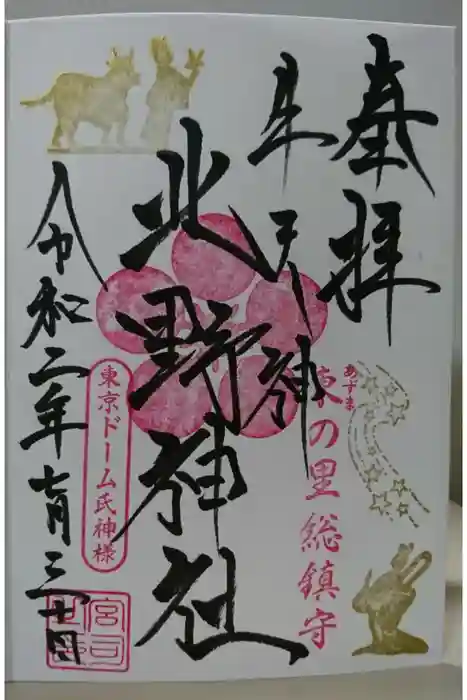 奉拝
あずま
東の里総鎮守
牛天神
北野神社
東京ドーム氏神様
令和二年七月三十日
宮司